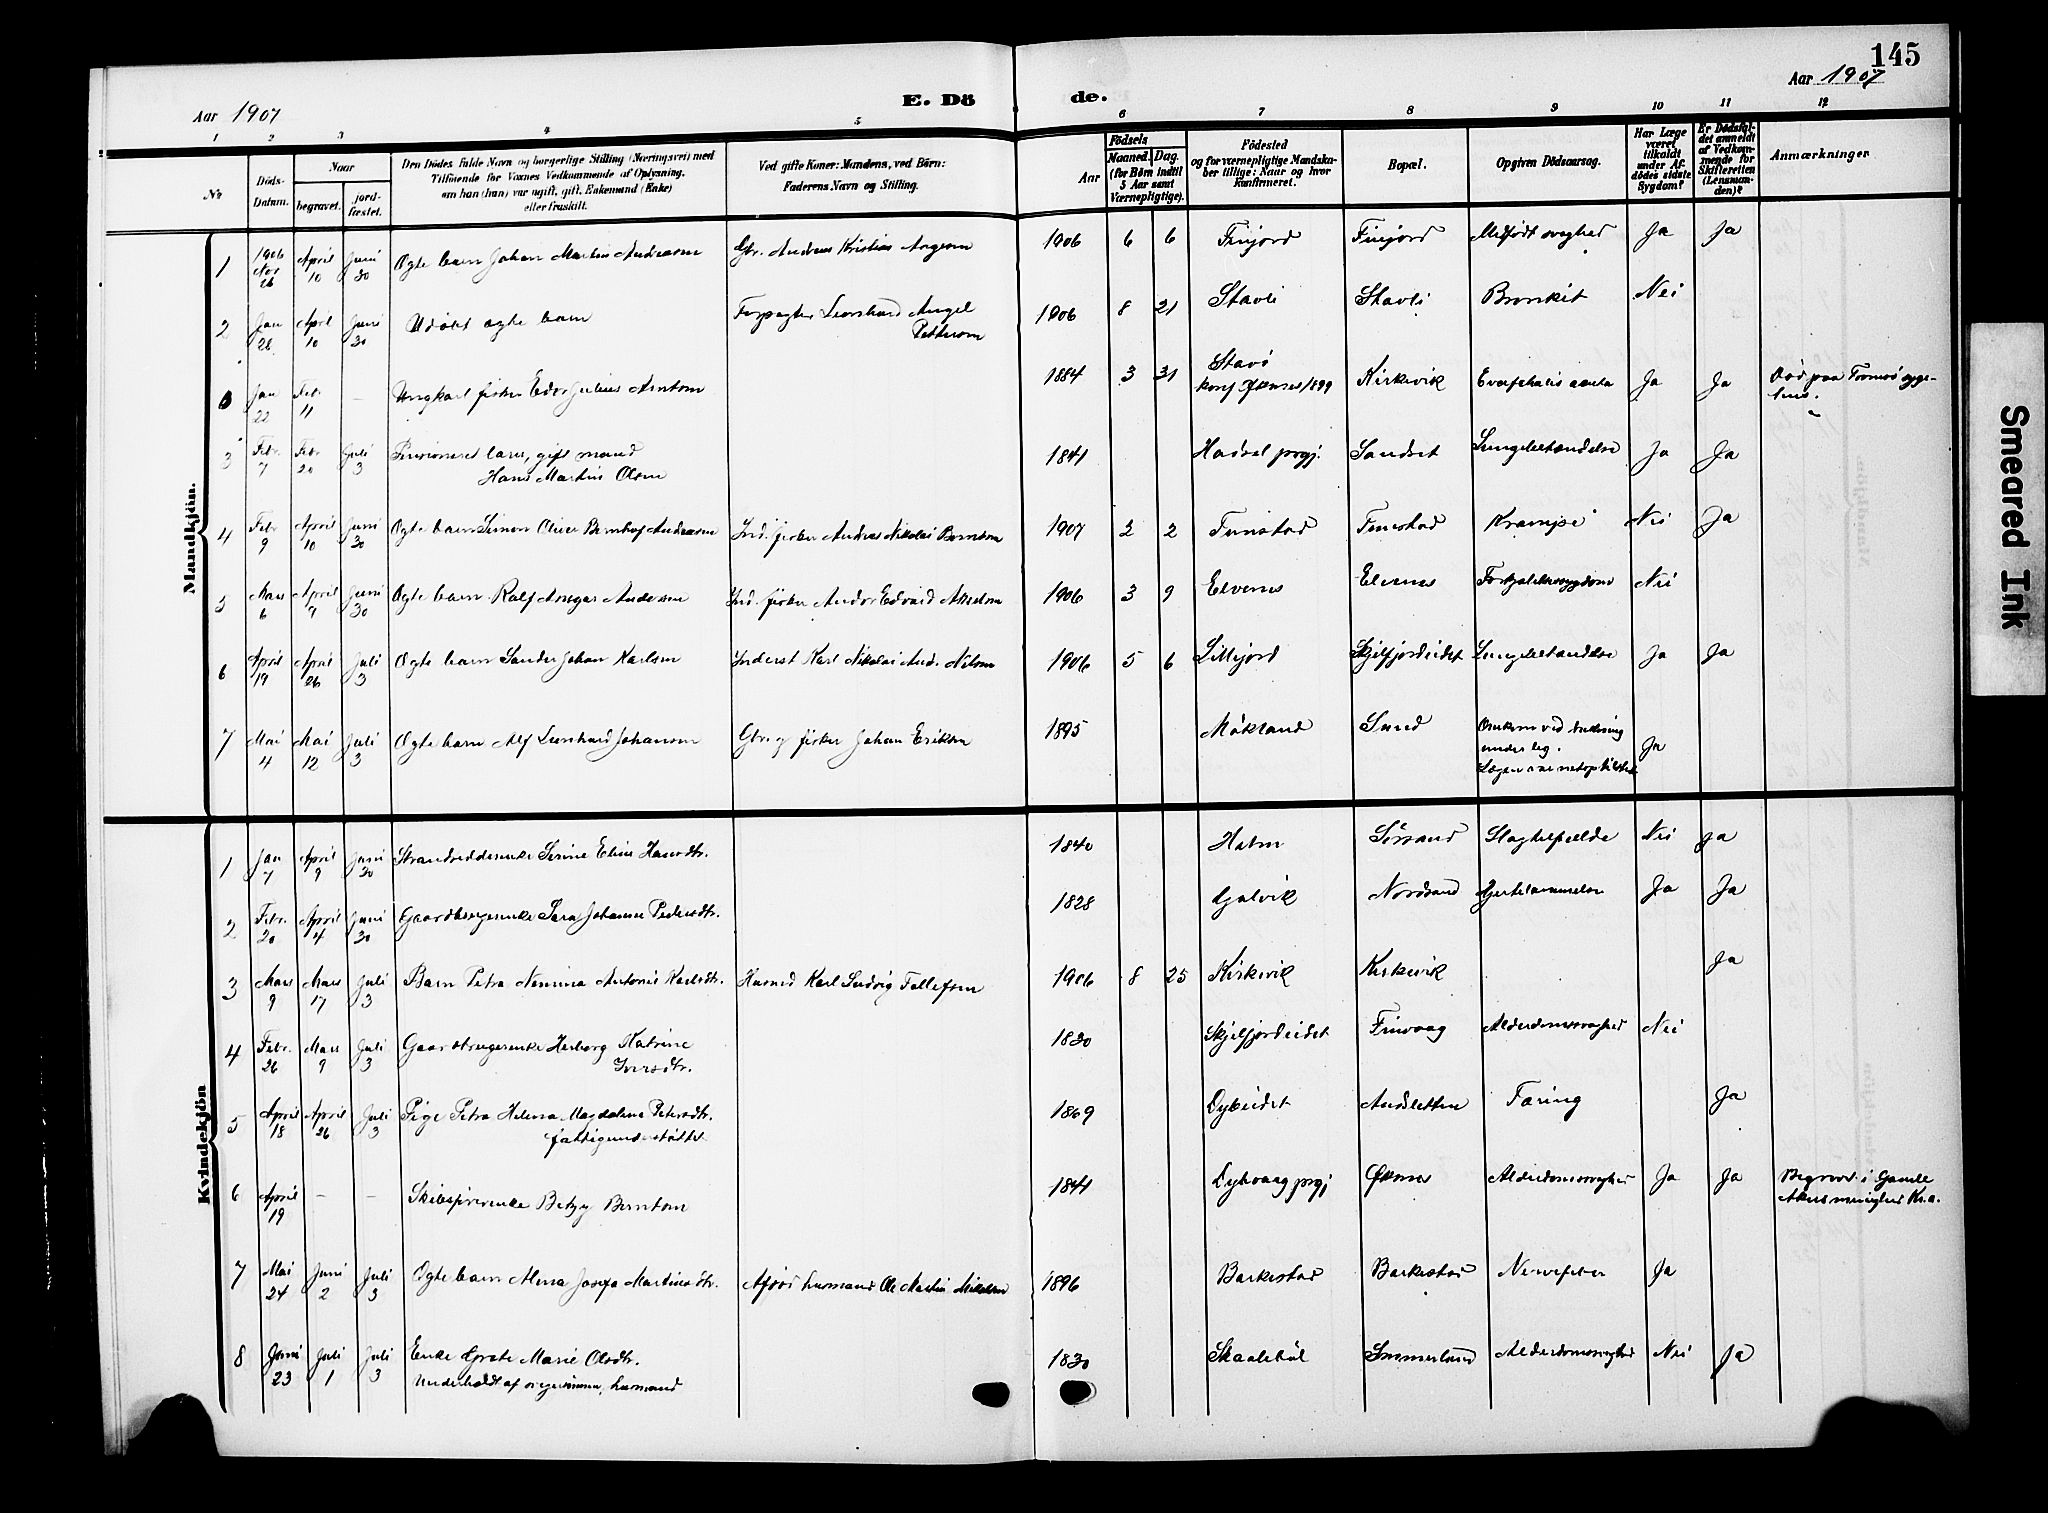 145
Aar 1907
E. Dö
de.
Aar 1907
1 2 3 4 5 6 7 8 9 10 11 12
No.
Döds-Datum.
Naar
begravet.
jord-fæstet.
Den Dödes fulde Navn og borgerlige Stilling (Næringsvei) med
Tilföiende for Voxnes Vedkommende af Oplysning,
om han (hun) var ugift, gift, Enkemand (Enke)
eller fraskilt.
Ved gifte Koner: Mandens, ved Börn:
Faderens Navn og Stilling.
Aar
Födsels
Maaned. Dag.
(for Börn indtil
5 Aar samt
Værnepligtige).
Födested
og for værnepligtige Mandska-
ber tillige: Naar og hvor
konfirmeret.
Bopæl.
Opgiven Dödsaarsag.
Har Læge
været
tilkaldt
under Af-
dödes sidste
Sygdom?
Er Dödsfal-
det anmeldt
af Vedkom-
mende for
Skifteretten
(Lensman-
den)?
Anmærkninger
Mandkjön.
1 1906 Nov 26 April 10 Juni 30 Ægte barn Johan Martin Andreasen Gbr. Andreas Kristian 1906 6 6 Finjord Finjord Medfødt svaghed Ja Ja
2 Jan 28 April 10 Juni 30 Udøbt ægte barn Forpagter Leonhard Angel
Pettersen 1906 8 21 Stavli Stavli Bronkit Nei
Jan 22 Febr 11 – Ungkarl fisker Edvr Julius Arntsen 1884 3 31 Stavø
konf Øksnes 1899 Kirkevik Ja Ja Død paa Tromsø syge-
hus.
3 Febr. 7 Febr 20 Juli 3 gift mand
Hans Martin Olsen 1841 Hadsel prgj. Sandset Lungebetændelse Ja Ja
4 Febr 9 April 10 Juni 30 Ægte barn Simon Oliver Bernhof Andreasen Ind. fisker Andreas Nikolai Berntsen 1907 2 2 Tunstad Tunstad Krampe Nei Ja
5 Mars 6 April 9 Juni 30 Ægte barn Ralf Ansgar Andersen Ind. fisker Andor Edvard 1906 3 9 Elvenes Elvenes Nei
6 April 19 April 26 Juli 3 Ægte barn Sander Johan Karlsen Inderst Karl Nikolai And. Nilsen 1906 5 6 Lillejord Skjelfjordeidet Lungebetændelse Ja Ja
7 Mai 4 Mai 12 Juli 3 Ægte barn Alf Leonhard Johansen Gbr og fisker Johan Eriksen 1895 Møkland Sund Omkom ved drukning
under leg.
Lægen var netop tilstede Ja
Kvindekjön
1 Jan 7 April 9 Juni 30 Strandsidderenke Serine Elene Hansdtr. 1840 Holm Sørsand Slagtilfælde Nei Ja
2 Febr. 20 April 4 Juni 30 Gaardbrugerenke Sara Johanna Pedersdtr. 1828 Gjalvik Nordsand Hjertelammelse Ja Ja
3 Mars 9 Mars 17 Juli 3 Barn Petra Nemina Antonie Karlsdtr. Husmd Karl Ludvig Tollefsen 1906 8 25 Kirkevik Kirkevik Ja
4 Febr. 26 Mars 9 Juli 3 Gaardbrugerenke Herborg Katrine
Iversdtr. 1830 Skjelfjordeidet Finvaag Alderdomssvaghed Nei
5 April 18 April 26 Juli 3 Pige Petra Helena Magdalena Petersdtr.
fattigunderstøttet 1869 Dybeidet Andsletten Tæring Ja
6 April 19 – – Skibsførerenke Betzy Berntsen 1841 Dybvaag prgj Øksnes Alderdomssvaghed Ja Ja Begravet i Gamle
Akers menighed Kr.a.
7 Mai 24 Juni 2 Juli 3 Ægte barn Alma Josefa Martinsdtr. Afdød husmand Ole Martin Mikalsen 1896 Barkestad Barkestad Nervefeber Ja
8 Juni 23 Juli 1 Juli 3 Enke Grete Marie Olsdtr.
Underholdt af svigersønnen, husmand 1830 Skaalebøl Sommerland Alderdomssvaghed Nei Ja
Smeared Ink